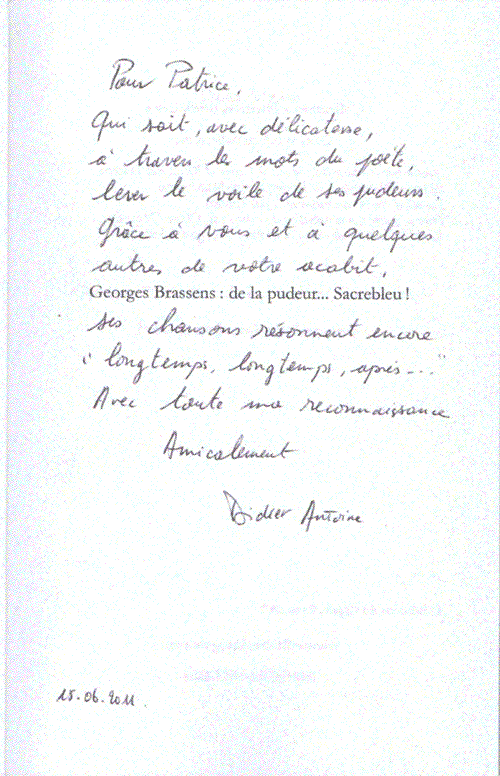 Pour Patrice,
Qui sait, avec délicatesse,
à travers les mots du poète,
lever le voile de ses pudeurs.
Grâce à vous et à quelques
autres de votre acabit,
Georges Brassens : de la pudeur... Sacrebleu !
ses chansons résonnent encore
"longtemps, longtemps, après..."
Avec toute ma reconnaissance
Amicalement
Didier Antoine
15.06.2011.